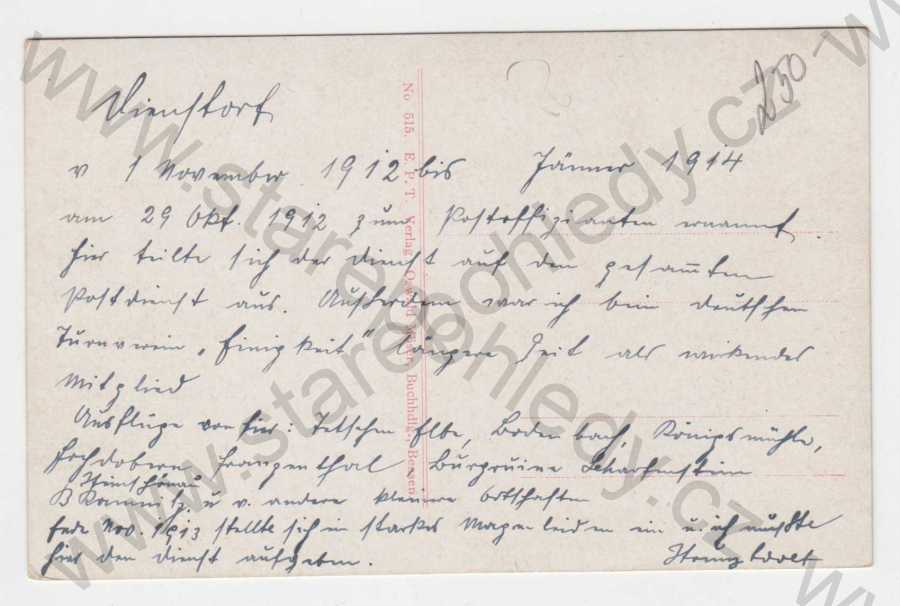 250
Dienstort
v 1 November 1912 bis Jänner 1914
am 29 Okt. 1912 zum Postoffizianten ernannt.
Hier teilte sich der Dienst auf den gesamten
Postdienst aus. Außerdem war ich beim deutschen
Turnverein „Einigkeit" längere Zeit als wirkendes
Mitglied
Ausflüge von hier: Tetschen Elbe, Bodenbach, Königsmühle,
Hochdobern Franzenthal, Burgruine Scharfenstein
Steinschönau
B Kamnitz. u v. andere kleinere Ortschaften
Ende Nov. 1913 stellte sich ein starkes Magenleiden ein u. ich mußte
hier den Dienst aufgeben.
No 515. E. P. T. Verlag Buchhdlg., Bensen
www.starepohledy.cz